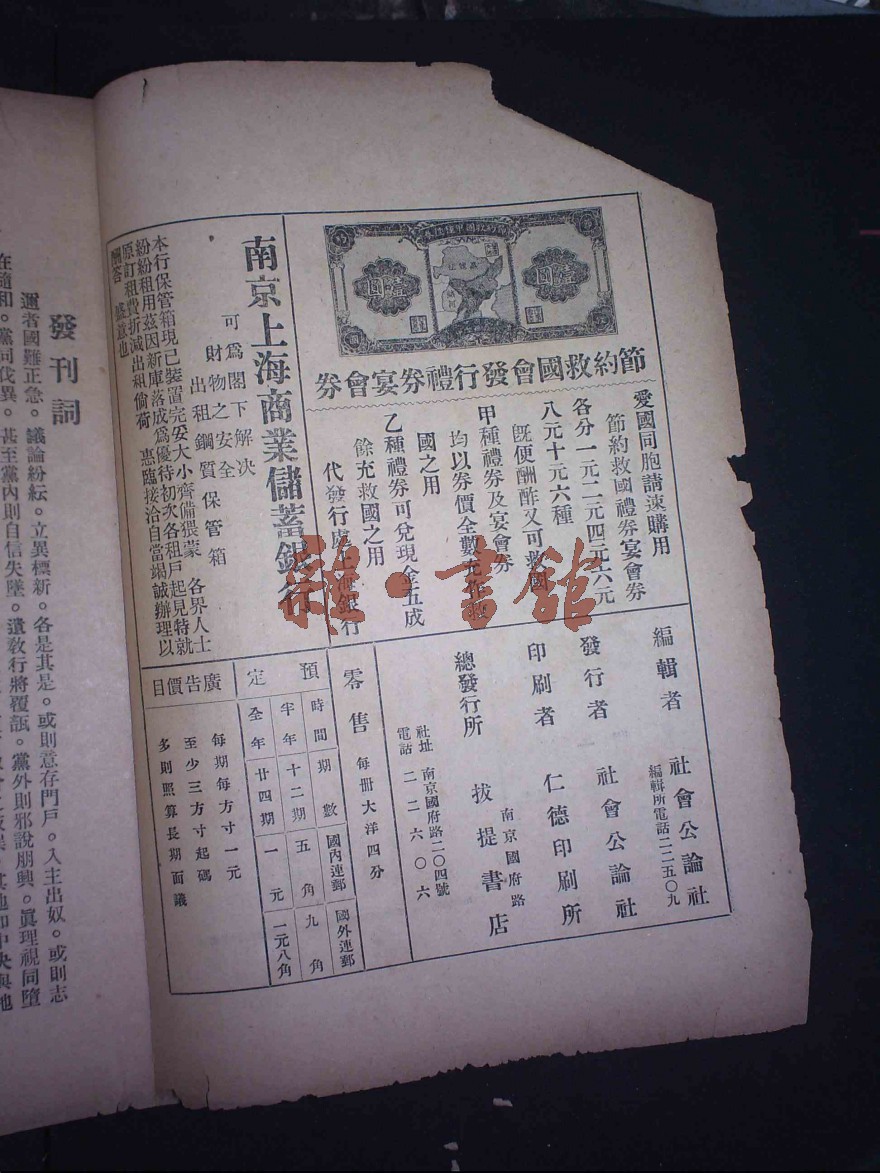 壹圓
壹圓
節約救國會發行禮券宴會券
愛國同胞請速購用
節約救國禮券宴會券
各分一元二元四元六元
八元十元六種
既便酬酢又可救國
甲種禮券及宴會券
均以券價全數充作救
國之用
乙種禮券可兌現金五成
餘充救國之用
代發行處上海銀行
南京上海商業儲蓄銀行
可爲閣下解決
財物之安全
出租鋼質保管箱
本行保管箱現已裝置完妥大小齊備猥蒙 各界人士
紛紛租用茲因新庫落成爲優待初次各租戶起見特就
原訂租費折減出租倘荷 惠臨接洽自當竭誠辦理以
酬答 盛意也
編輯者 社會公論社
編輯所電話二二五〇九
發行者 社會公論社
印刷者 仁德印刷所
南京國府路
總發行所 拔提書店
社址 南京國府路二〇四號
電話 二二六〇六
零售 每冊大洋四分
預定
時間 期數 國內連郵 國外連郵
半年 十二期 五角 九角
全年 廿四期 一元 一元八角
廣告價目
每期每方寸一元
至少三方寸起碼
多則照算長期面議
發刊詞
邇者國難正急。議論紛紜。立異標新。各是其是。或則意存門戶。入主出奴。或則志
在隨和。黨同伐異。甚至黨內則自信失墜。遺教行將覆瓿。黨外則邪說朋興。眞理視同墮
雜·書館